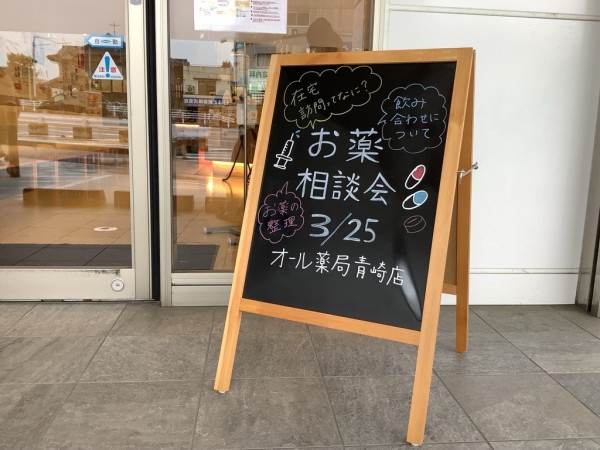 自動
注意
在宅
訪問ってなに?
飲み
合わせに
ついて
お薬
相談会
お薬の
整理
3/25
オール薬局青崎店